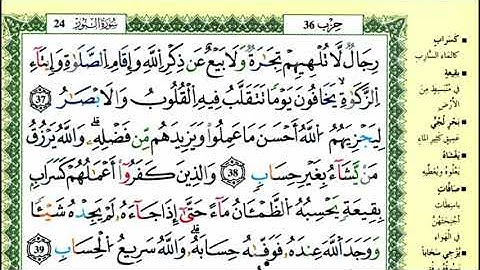 24 سُورَةُ النُّورِ
حِزْب 36
رِجَالٌ لَّا تُلْهِيهِمْ تِجَٰرَةٌ وَلَا بَيْعٌ عَن ذِكْرِ ٱللَّهِ وَإِقَامِ ٱلصَّلَوٰةِ وَإِيتَآءِ
ٱلزَّكَوٰةِ يَخَافُونَ يَوْمًا تَتَقَلَّبُ فِيهِ ٱلْقُلُوبُ وَٱلْأَبْصَٰرُ 37
لِيَجْزِيَهُمُ ٱللَّهُ أَحْسَنَ مَا عَمِلُوا۟ وَيَزِيدَهُم مِّن فَضْلِهِۦ وَٱللَّهُ يَرْزُقُ
مَن يَشَآءُ بِغَيْرِ حِسَابٍ 38 وَٱلَّذِينَ كَفَرُوٓا۟ أَعْمَٰلُهُمْ كَسَرَابٍ
بِقِيعَةٍ يَحْسَبُهُ ٱلظَّمْـَٔانُ مَآءً حَتَّىٰٓ إِذَا جَآءَهُۥ لَمْ يَجِدْهُ شَيْـًٔا
وَوَجَدَ ٱللَّهَ عِندَهُۥ فَوَفَّىٰهُ حِسَابَهُۥ وَٱللَّهُ سَرِيعُ ٱلْحِسَابِ 39
كَسَرَابٍ
كالماء السَّارب
بِقِيعَةٍ
في مُنْبَسِطٍ مِنَ
الأرْضِ
بَحْرٍ لُّجِّيٍّ
عَميقٍ كَثيرِ الماءِ
يَغْشَاهُ
يَعْلُوهُ ويُغَطِّيهِ
صَافَّاتٍ
باسِطَاتٍ
أجْنِحَتَهُنَّ
في الهَواءِ
يُزْجِي سَحَاباً